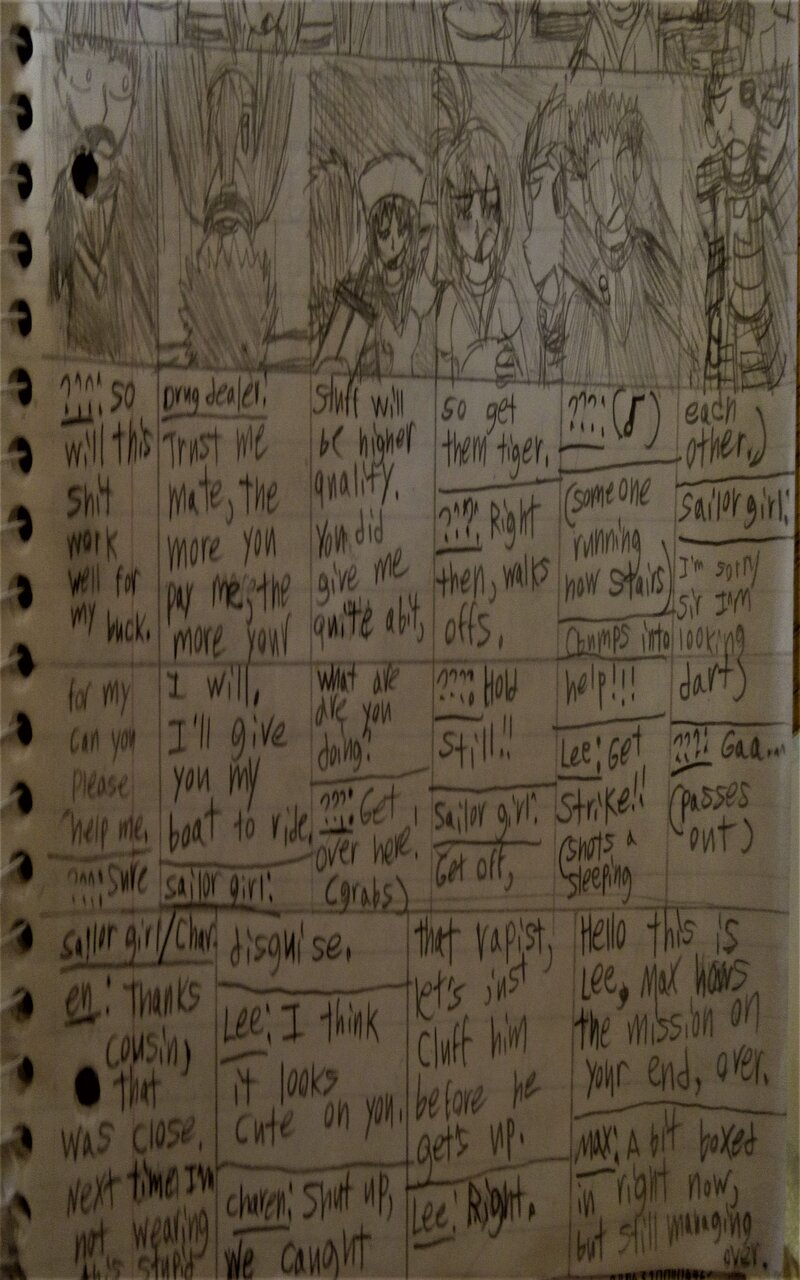 ????: so
will this
shit
work
well for
my buck.
Drug dealer:
Trust me
mate, the
more you
pay me, the
more your
stuff will
be higher
quality.
You did
give me
quite abit,
so get
them tiger.
????: Right
then, walks
offs.
????: (♪)
(someone
running
how stairs)
(bumps into
each
other.)
Sailor girl:
I'm sorry
sir I'm
looking
for my
can you
please
help me.
????: Sure
I will.
I'll give
you my
boat to ride.
sailor girl:
what are
are you
doing?
????: Get
over here!
(grabs)
????: Hold
still!!
Sailor girl:
Get off,
help!!!
Lee: Get
strike!!
(shots a
sleeping
dart)
????: Gaa...
(passes
out)
sailor girl/Char
en: Thanks
cousin,
that
was close.
Next time I'm
not wearing
this stupid
disguise.
Lee: I think
it looks
cute on you.
charen: Shut up,
we caught
that rapist,
let's just
Cluff him
before he
gets up.
Lee: Right.
Hello this is
Lee, Max hows
the mission on
your end, over.
Max: A bit boxed
in right now,
but still managing
over.